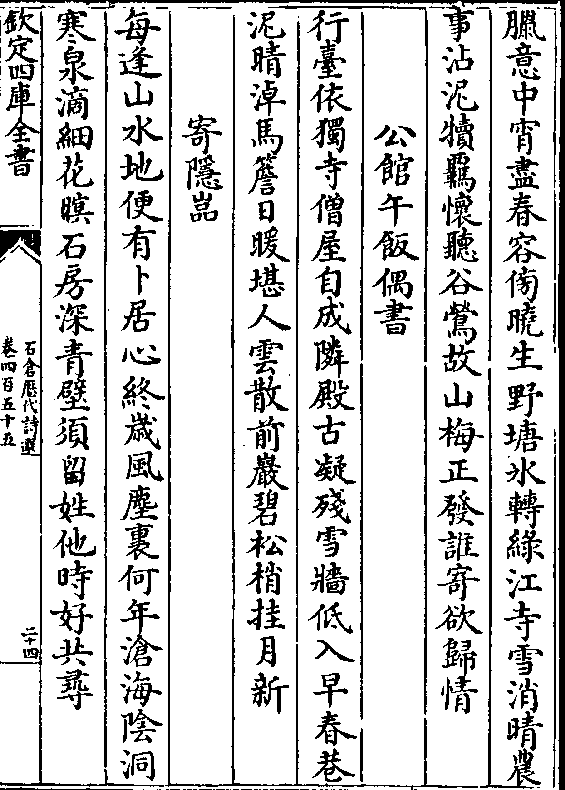 臘意中宵盡春容傍曉生野塘氷轉綠江寺雪消晴農
事沾泥犢羈懷聽谷鶯故山梅正發誰寄欲歸情
公館午飯偶書
行臺依獨寺僧屋自成隣殿古凝殘雪牆低入早春巷
泥晴淖馬簷日暖堪人雲散前巖碧松梢挂月新
寄隱嵓
每逢山水地便有卜居心終歲風塵裏何年滄海陰洞
寒泉滴細花暝石房深青壁須留姓他時好共尋
欽定四庫全書
石倉歷代詩選
卷四百五十五
二十四